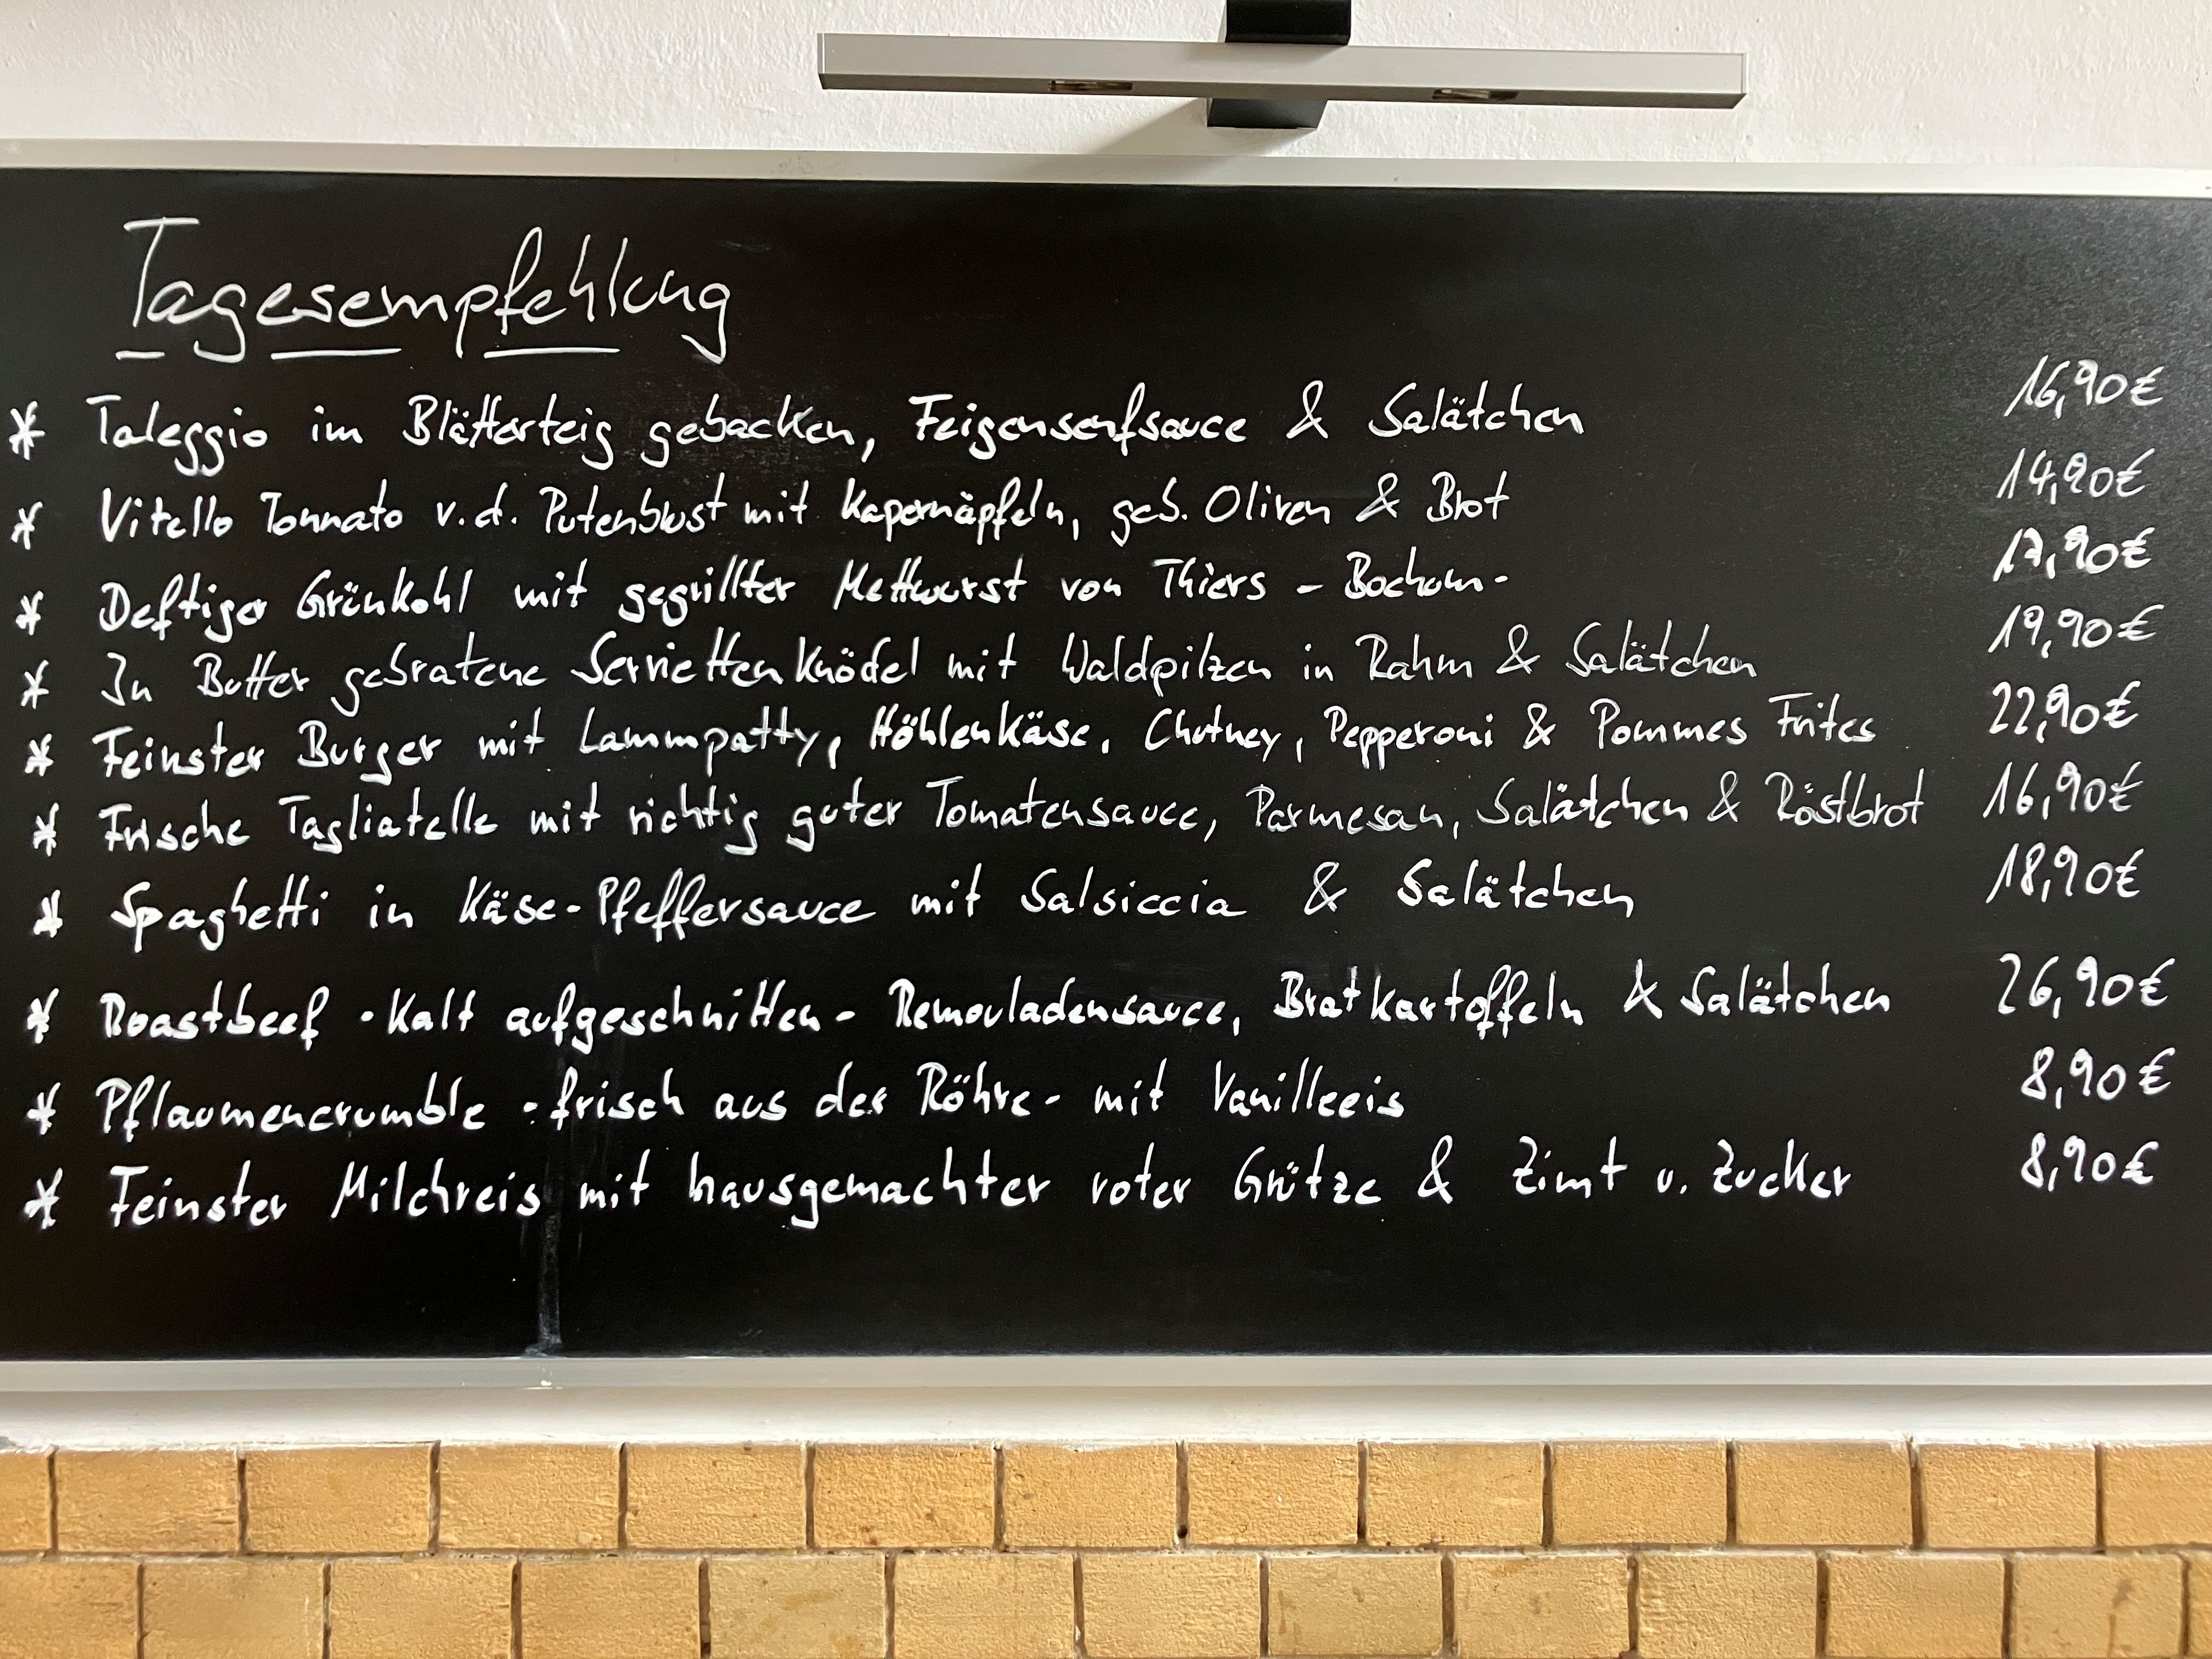 Tagesempfehlung
* Taleggio im Blätterteig gebacken, Feigensenfsauce & Salätchen 16,90€
* Vitello Tonnato v.d. Putenbrust mit Kapernäpfeln, geb. Oliven & Brot 14,90€
* Deftiger Grünkohl mit gegrillter Mettwurst von Thiers - Bochum- 17,90€
* In Butter gebratene Serviettenknödel mit Waldpilzen in Rahm & Salätchen 19,90€
* Feinster Burger mit Lammpatty, Höhlenkäse, Chutney, Pepperoni & Pommes Frites 22,90€
* Frische Tagliatelle mit richtig guter Tomatensauce, Parmesan, Salätchen & Röstbrot 16,90€
* Spaghetti in Käse-Pfeffersauce mit Salsiccia & Salätchen 18,90€
* Roastbeef -kalt aufgeschnitten- Remouladensauce, Bratkartoffeln & Salätchen 26,90€
* Pflaumencrumble -frisch aus der Röhre- mit Vanilleeis 8,90€
* Feinster Milchreis mit hausgemachter roter Grütze & Zimt u. Zucker 8,90€